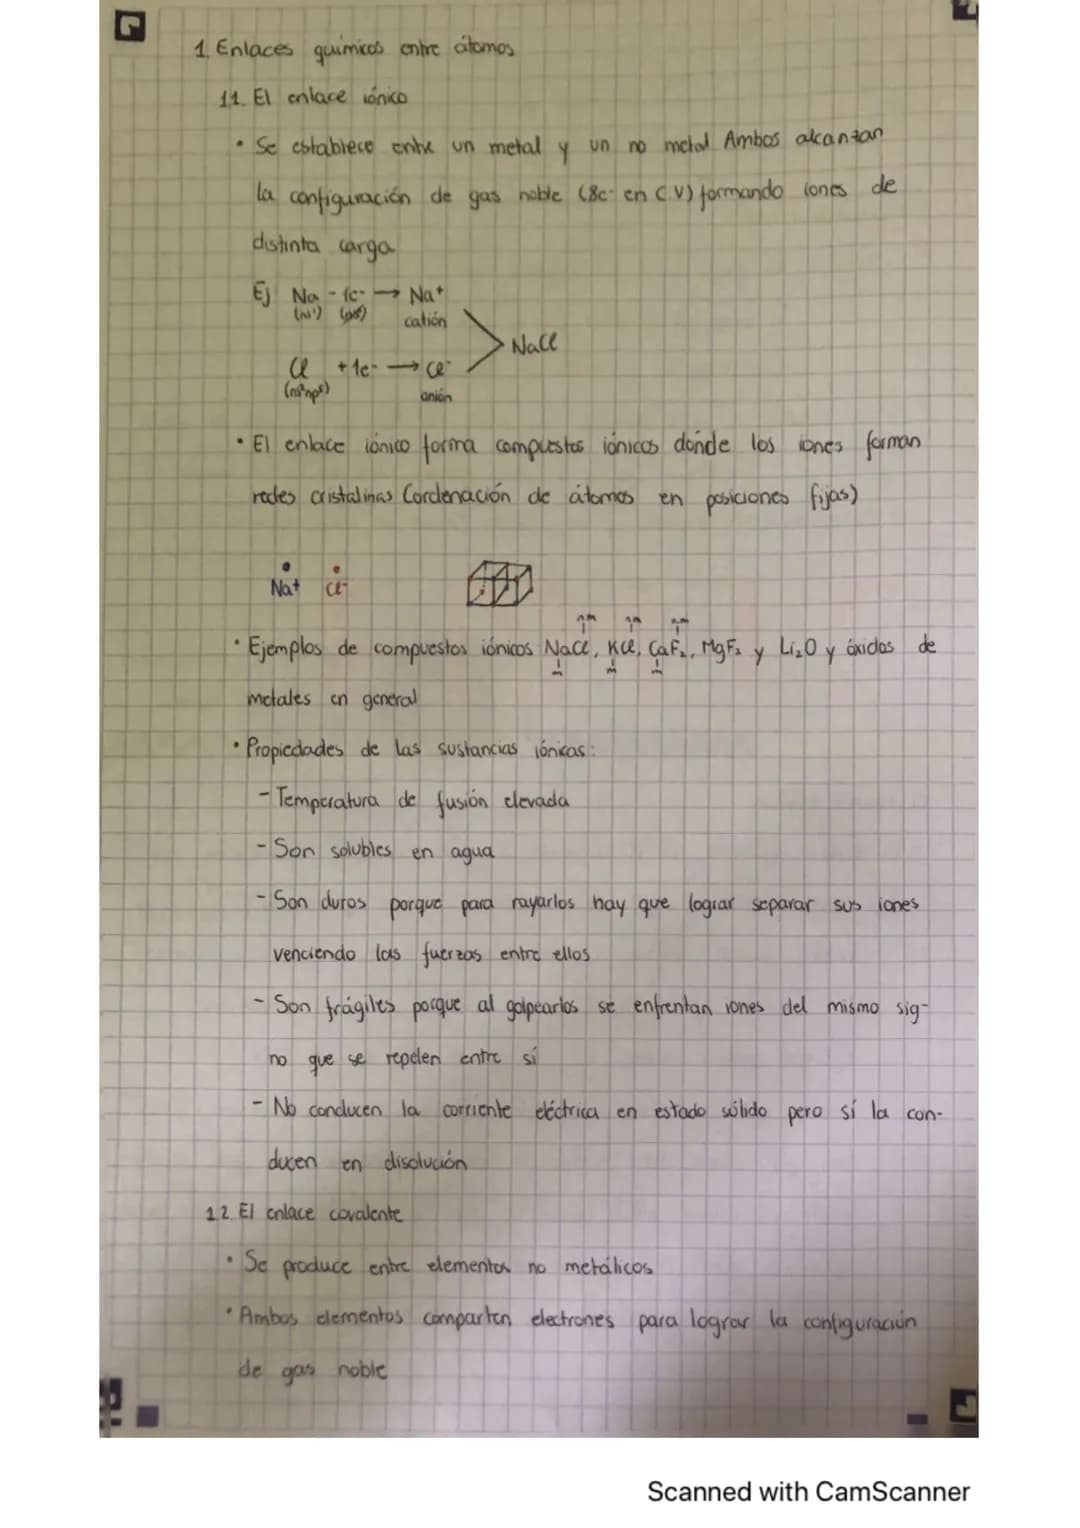 1. Enlaces químicos entre átomos
1.1. El enlace iónico
• Se establece entre un metal y un no metal. Ambos alcanzan
la configuración de gas noble (8e- en C.V) formando iones de
distinta carga
Ej Na - 1e- → Na+
(ns1)
catión
NaCl
Cl + 1e- → Cl-
(ns2np5) anión
• El enlace iónico forma compuestos iónicos donde los iones forman
redes cristalinas (ordenación de átomos en posiciones fijas)
Na+ Cl-
n.m n.m n.m
• Ejemplos de compuestos iónicos: NaCl, KCl, CaF2, MgF2 y Li2O y óxidos de
m m m
metales en general
• Propiedades de las sustancias iónicas:
- Temperatura de fusión elevada
- Son solubles en agua
- Son duros porque para rayarlos hay que lograr separar sus iones
venciendo las fuerzas entre ellos
- Son frágiles porque al golpearlos se enfrentan iones del mismo sig-
no que se repelen entre sí
- No conducen la corriente eléctrica en estado sólido pero sí la con-
ducen en disolución
1.2. El enlace covalente
• Se produce entre elementos no metálicos
• Ambos elementos comparten electrones para lograr la configuración
de gas noble
Scanned with CamScanner